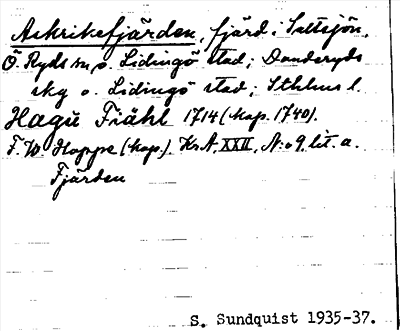 Askrikefjärden, fjärd i Saltsjön,
Ö. Ryds sn, o. Lidingö stad; Danderyds
skg o. Lidingö stad; Sthlms l.
Hagü Fiähl 1714 (kop. 1740).
F. W. Hoppe (kop.). KrA, XXII, N:o 9, lit. a.
Fjärden
S. Sundquist 1935-37.